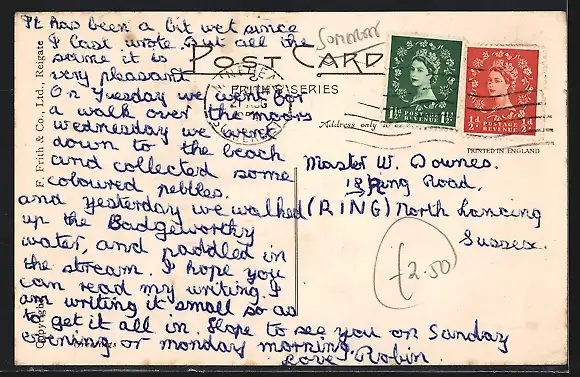 It has been a bit wet since
I last wrote but all the
same it is
very pleasant
On Tuesday we went for
a walk over the moors
wednesday we went
down to the beach
and collected some
coloured pebbles.
and yesterday we walked
up the Badgeworthy
water, and paddled in
the stream. I hope you
can read my writing. I
am writing it small so as
to get it all in. Hope to see you on Sunday
evening or monday morning.
love Robin.
Somerset
POST CARD
FRITH'S SERIES
Address only to
F. Frith & Co., Ltd., Reigate
Copyright
1½d 1½d
POSTAGE REVENUE
½d ½d
POSTAGE REVENUE
PRINTED IN ENGLAND
Master W. Downes.
Ring Road,
(RING) North Lancing
Sussex.
£2.50